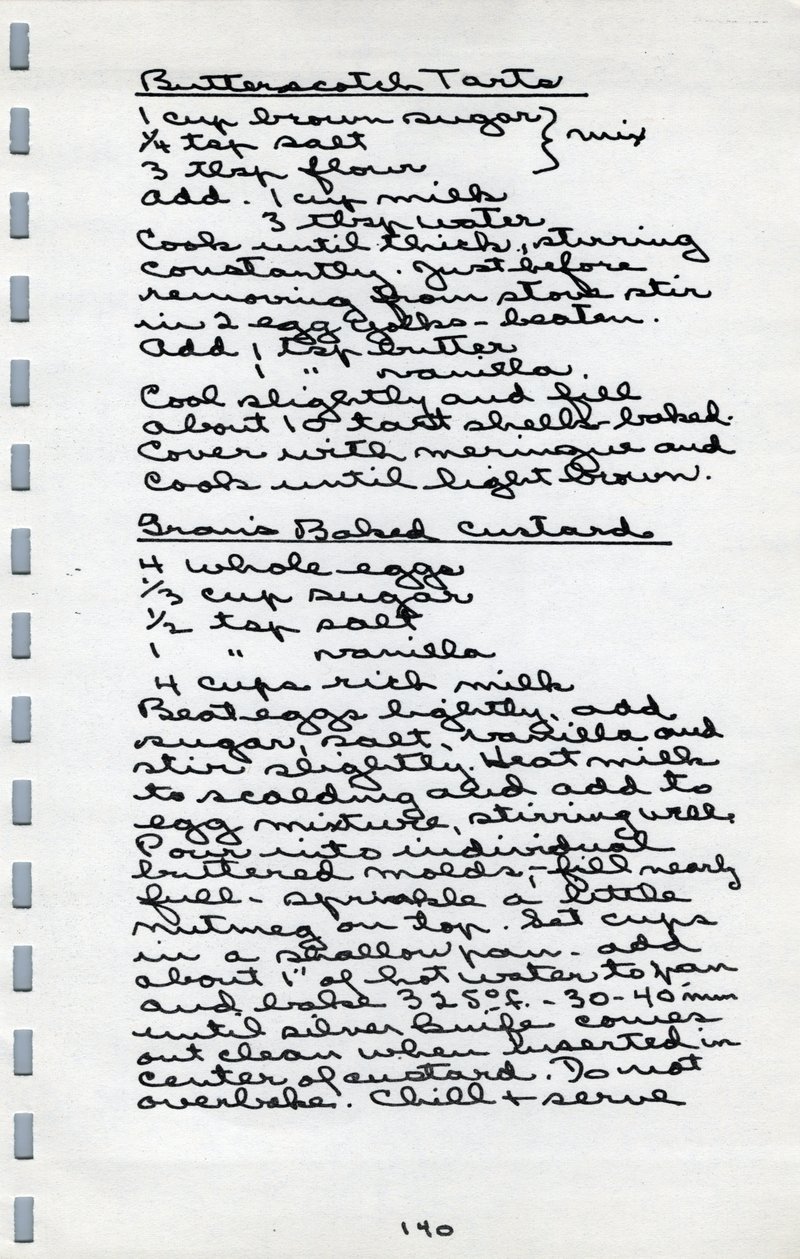 Butterscotch Tarts
1 cup brown sugar } mix
1/4 tsp salt
3 tbsp flour
add. 1 cup milk
3 tbsp water
Cook until thick, stirring
constantly. Just before
removing from stove stir
in 2 egg yolks - beaten.
Add 1 tsp butter
1 " vanilla.
Cool slightly and fill
about 10 tart shells - baked.
Cover with meringue and
cook until light brown.
Gran's Baked Custard
4 whole eggs
1/3 cup sugar
1/2 tsp salt
1 " vanilla
4 cups rich milk
Beat eggs lightly, add
sugar, salt, vanilla and
stir slightly. Heat milk
to scalding and add to
egg mixture, stirring well.
Pour into individual
buttered molds, - fill nearly
full - sprinkle a little
nutmeg on top. Set cups
in a shallow pan - add
about 1" of hot water to pan
and bake 325° f. - 30 - 40 min
until silver knife comes
out clean when inserted in
center of custard. Do not
overbake. Chill + serve
140